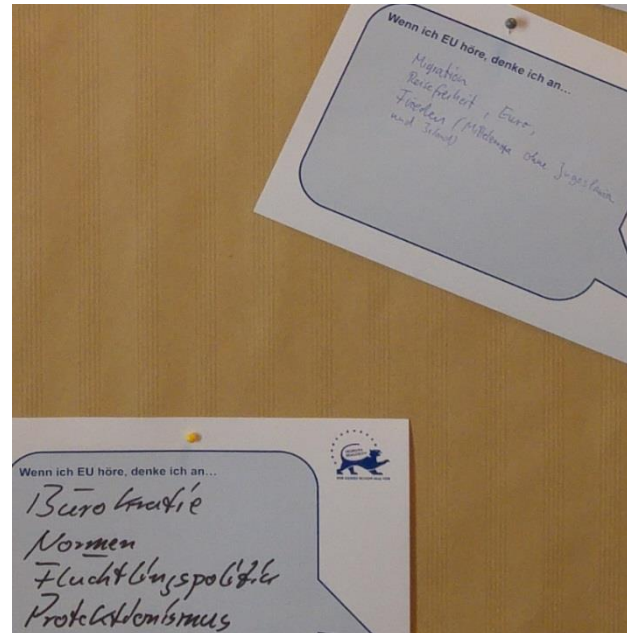 Wenn ich EU höre, denke ich an...
Migration
Reisefreiheit, Euro,
Frieden (Mitteleuropa ohne Jugoslawien
und Irland)
Wenn ich EU höre, denke ich an...
Bürokratie
Normen
Fluchtlingspolitik
Protektionismus